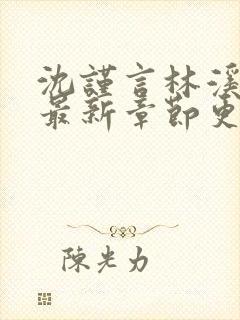 沈謹言林溪
最新章節更
陳光力